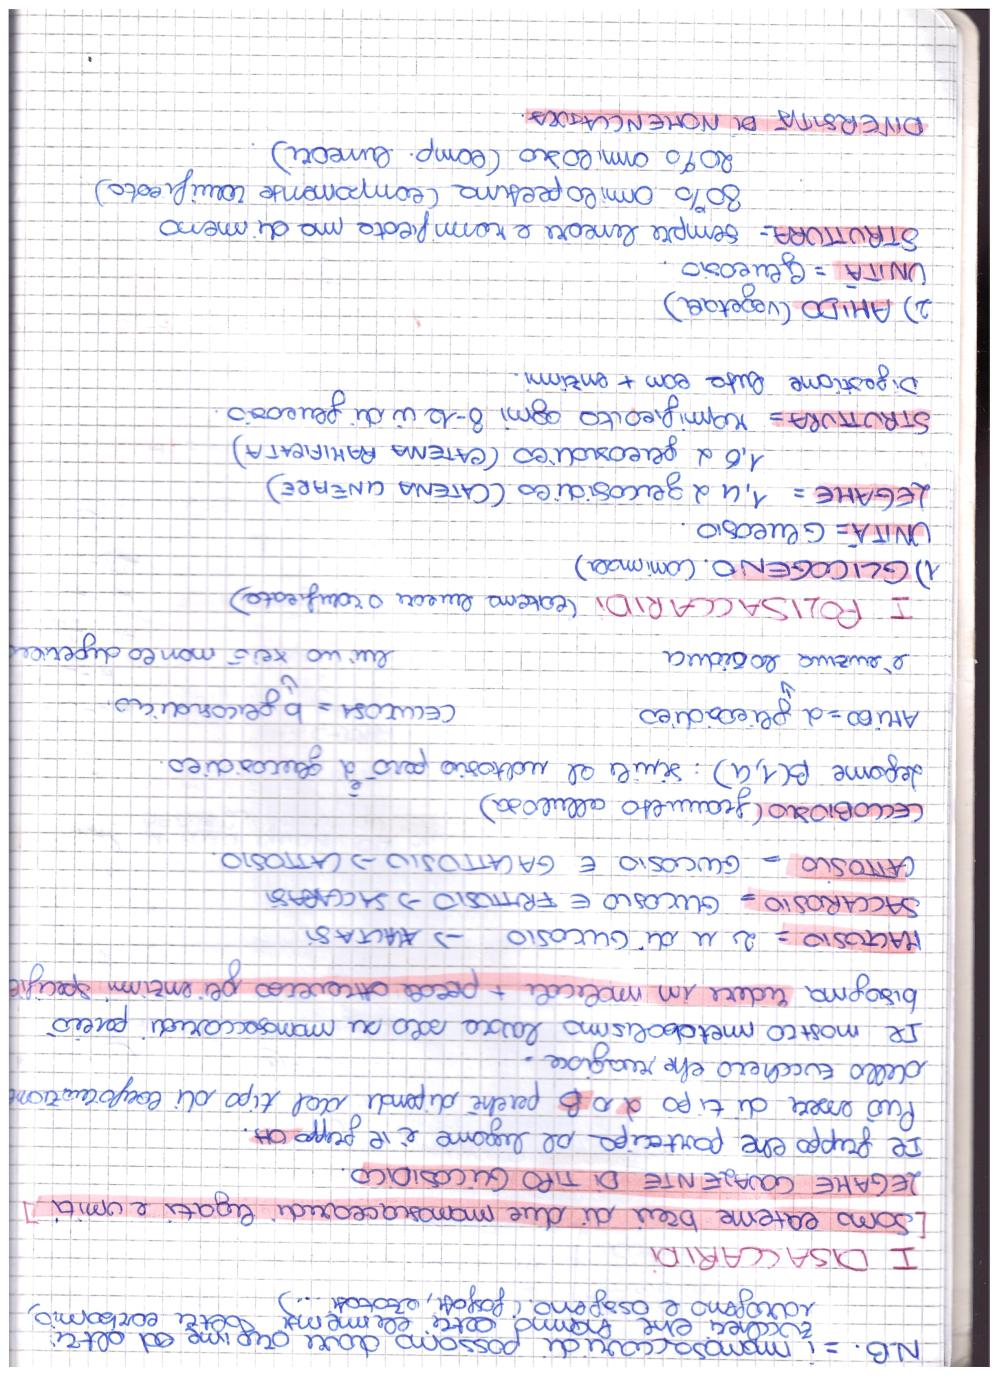 N.B. = i monosaccaridi possono dare origine ad altri
zuccheri che hanno altri elementi (oltre carbonio,
idrogeno e ossigeno (fosfati, azotati ...)
I DISACCARIDI
[Sono catene brevi di due monosaccaridi legati e uniti]
LEGAME COVALENTE DI TIPO GLICOSIDICO.
Il gruppo che partecipa al legame è il gruppo OH.
Può essere di tipo α o β perché dipende dal tipo di
dello zucchero che reagisce.
Il nostro metabolismo lavora solo su monosaccaridi perciò
bisogna ridurre in molecole + piccole attraverso gli enzimi specific
MALTOSIO = 2 u di GLUCOSIO → MALTASI
SACCAROSIO = GLUCOSIO E FRUTTOSIO → SACCARASI
LATTOSIO = GLUCOSIO E GALATTOSIO → LATTOSIO.
CELLOBIOSIO (frammento cellulosa)
legame β(1,4) : simile al maltosio però è α glucosidico
AMIDO = α glicosidico CELLULOSA = b glicosidico.
↓ ↓
l'enzima lo lui no xè manco
I POLISACCARIDI (catena lineare o ramificata)
1) GLICOGENO. (animale)
UNITÀ = Glucosio.
LEGAME = 1,4 α glucosidico (CATENA LINEARE)
1,6 α glucosidico (CATENA RAMIFICATA)
STRUTTURA = ramificato ogni 8-12 u di glucosio.
Digestione lenta con + enzimi.
2) AMIDO (vegetale)
UNITÀ = Glucosio.
STRUTTURA = sempre lineare e ramificata ma di meno
80% amilopectina (componente ramificata)
20% amilosio (comp. lineare).
DIVERSITÀ DI NOMENCLATURA.